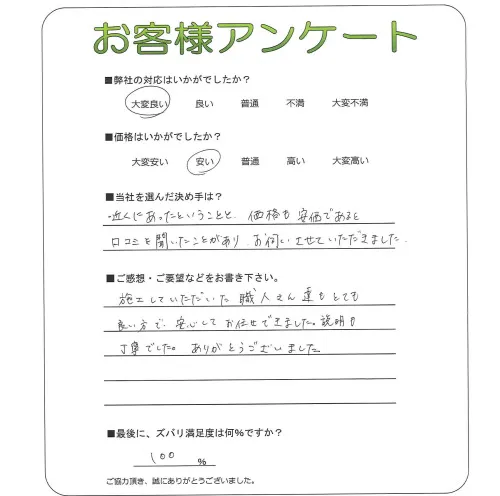 お客様アンケート
■弊社の対応はいかがでしたか?
大変良い 良い 普通 不満 大変不満
■価格はいかがでしたか?
大変安い 安い 普通 高い 大変高い
■当社を選んだ決め手は?
・近くにあったということと、価格も安価であると
口コミを聞いたことがあり、お伺いさせていただきました。
■ご感想・ご要望などをお書き下さい。
施工していただいた職人さん達もとても
良い方で、安心してお任せできました。説明も
丁寧でした。ありがとうございました。
■最後に、ズバリ満足度は何%ですか?
100 %
ご協力頂き、誠にありがとうございました。